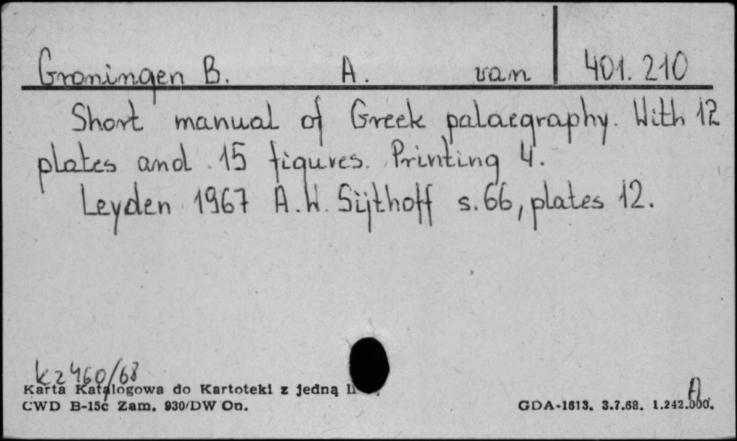 Groningen B. A. van 401.210
Short manual of Greek palaegraphy. With 12
plates and 15 figures. Printing 4.
Leyden 1967 A.W. Sijthoff s.66, plates 12.
kz 460/68
Karta Katalogowa do Kartoteki z jedną
CWD B-15c Zam. 930/DW On.
GDA-1613. 3.7.68. 1.242.000.
A